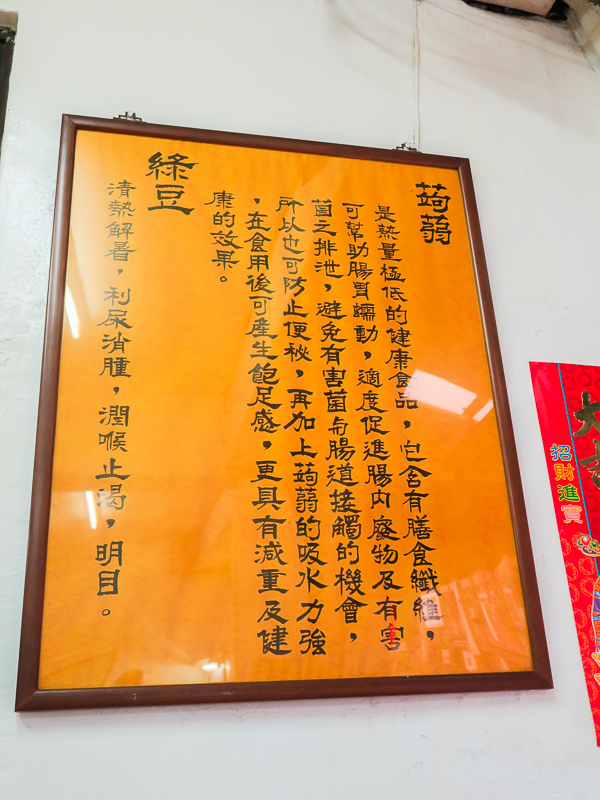 蒟蒻
是熱量極低的健康食品，它含有膳食纖維，
可幫助腸胃蠕動，適度促進腸內廢物及有害
菌之排泄，避免有害菌與腸道接觸的機會，
所以也可防止便秘，再加上蒟蒻的吸水力強
，在食用後可產生飽足感，更具有減重及健
康的效果。
綠豆
清熱解暑，利尿消腫，潤喉止渴，明目。
招財進寶